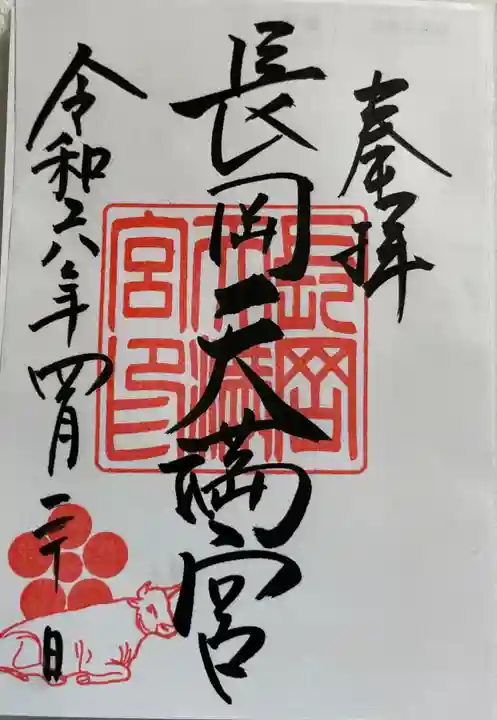 奉拝
長岡天満宮
長岡
天満
宮印
令和六年四月二十日